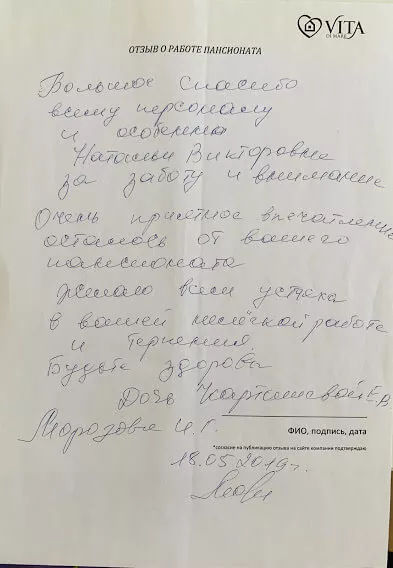 VITA
DI MARE
ОТЗЫВ О РАБОТЕ ПАНСИОНАТА
Большое спасибо
всему персоналу
и особенно
Натальи Викторовне
за заботу и внимание
Очень приятное впечатление
осталось от вашего
пансионата
Желаю всем успеха
в вашей нелёгкой работе
и терпения.
Будьте здоровы
Дочь Е.В.
Морозова И.Г.
ФИО, подпись, дата
*согласие на публикацию отзыва на сайте компании подтверждаю
18.05.2019г.